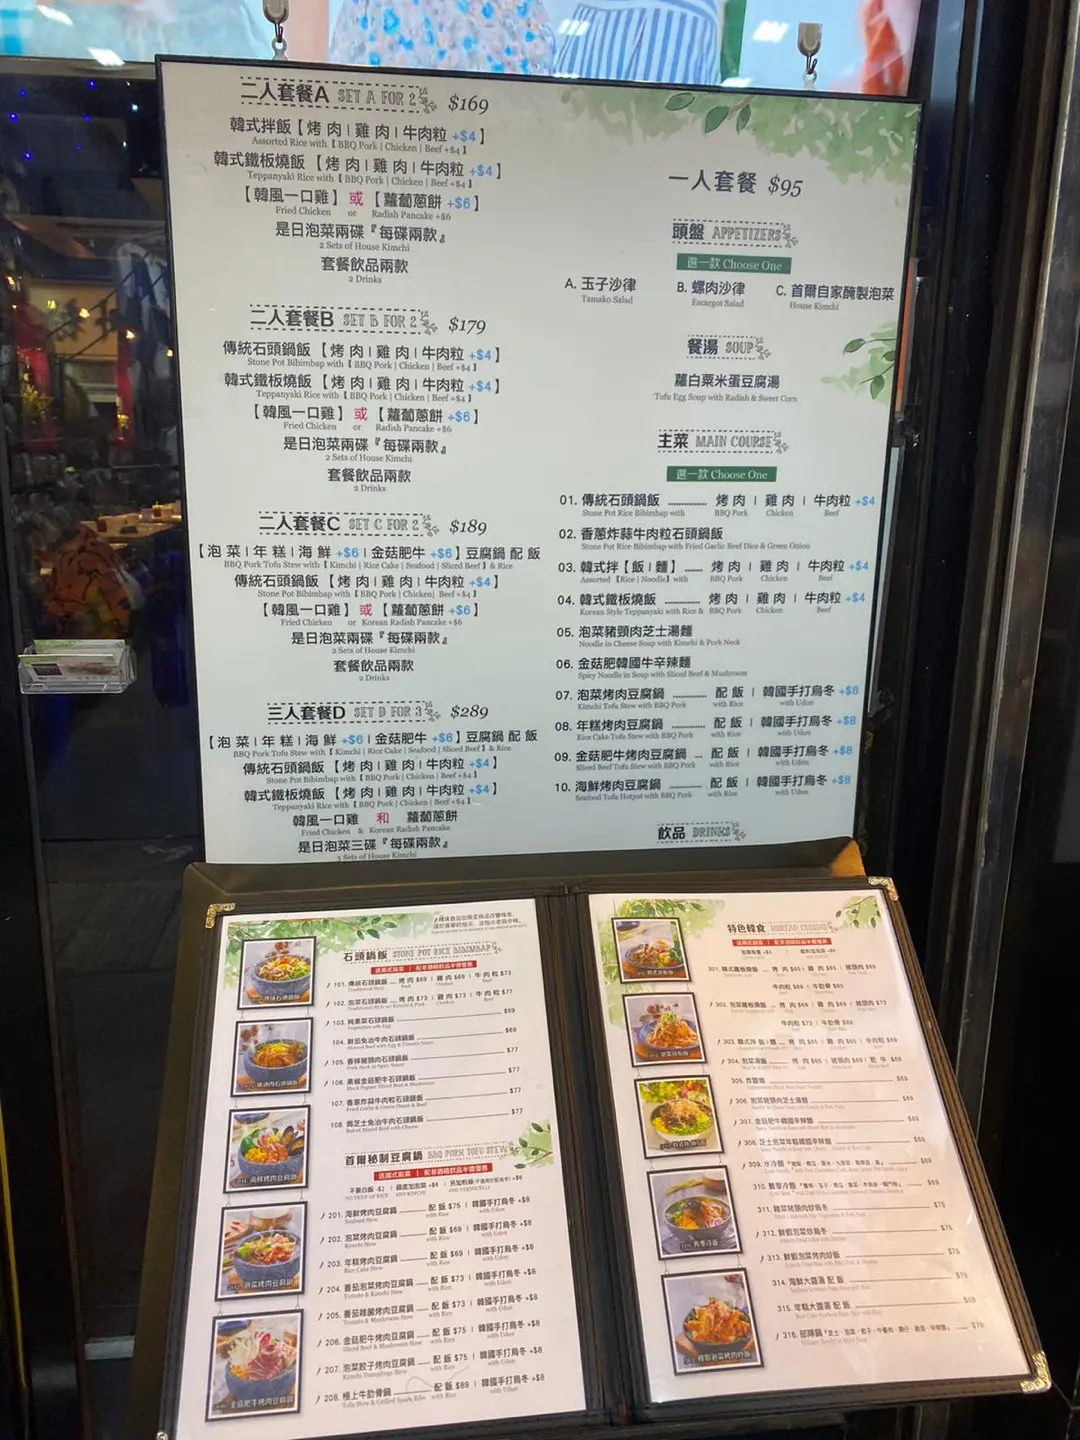 二人套餐A SET A FOR 2 $169
韓式拌飯【烤 肉 | 雞 肉 | 牛肉粒 +$4】
Assorted Rice with【BBQ Pork | Chicken | Beef +$4】
韓式鐵板燒飯【烤 肉 | 雞 肉 | 牛肉粒 +$4】
Teppanyaki Rice with【BBQ Pork | Chicken | Beef +$4】
【韓風一口雞】或【蘿蔔蔥餅 +$6】
Fried Chicken or Radish Pancake +$6
是日泡菜兩碟『每碟兩款』
2 Sets of House Kimchi
套餐飲品兩款
2 Drinks
二人套餐B SET B FOR 2 $179
傳統石頭鍋飯【烤 肉 | 雞 肉 | 牛肉粒 +$4】
Stone Pot Bibimbap with【BBQ Pork | Chicken | Beef +$4】
韓式鐵板燒飯【烤 肉 | 雞 肉 | 牛肉粒 +$4】
Teppanyaki Rice with【BBQ Pork | Chicken | Beef +$4】
【韓風一口雞】或【蘿蔔蔥餅 +$6】
Fried Chicken or Radish Pancake +$6
是日泡菜兩碟『每碟兩款』
2 Sets of House Kimchi
套餐飲品兩款
2 Drinks
二人套餐C SET C FOR 2 $189
【泡 菜 | 年 糕 | 海 鮮 +$6 | 金菇肥牛 +$6】豆腐鍋 配 飯
BBQ Pork Tofu Stew with【Kimchi | Rice Cake | Seafood | Sliced Beef】& Rice
傳統石頭鍋飯【烤 肉 | 雞 肉 | 牛肉粒 +$4】
Stone Pot Bibimbap with【BBQ Pork | Chicken | Beef +$4】
【韓風一口雞】或【蘿蔔蔥餅 +$6】
Fried Chicken or Korean Radish Pancake +$6
是日泡菜兩碟『每碟兩款』
2 Sets of House Kimchi
套餐飲品兩款
2 Drinks
三人套餐D SET D FOR 3 $289
【泡 菜 | 年 糕 | 海 鮮 +$6 | 金菇肥牛 +$6】豆腐鍋 配 飯
BBQ Pork Tofu Stew with【Kimchi | Rice Cake | Seafood | Sliced Beef】& Rice
傳統石頭鍋飯【烤 肉 | 雞 肉 | 牛肉粒 +$4】
Stone Pot Bibimbap with【BBQ Pork | Chicken | Beef +$4】
韓式鐵板燒飯【烤 肉 | 雞 肉 | 牛肉粒 +$4】
Teppanyaki Rice with【BBQ Pork | Chicken | Beef +$4】
韓風一口雞 和 蘿蔔蔥餅
Fried Chicken & Korean Radish Pancake
是日泡菜三碟『每碟兩款』
3 Sets of House Kimchi
一人套餐 $95
頭盤 APPETIZERS
選一款 Choose One
A. 玉子沙律 B. 螺肉沙律 C. 首爾自家醃製泡菜
Tamako Salad Escargot Salad House Kimchi
餐湯 SOUP
蘿白粟米蛋豆腐湯
Tofu Egg Soup with Radish & Sweet Corn
主菜 MAIN COURSE
選一款 Choose One
01. 傳統石頭鍋飯 .............. 烤 肉 | 雞 肉 | 牛肉粒 +$4
Stone Pot Rice Bibimbap with BBQ Pork Chicken Beef
02. 香蔥炸蒜牛肉粒石頭鍋飯
Stone Pot Rice Bibimbap with Fried Garlic Beef Dice & Green Onion
03. 韓式拌【飯 | 麵】 ...... 烤 肉 | 雞 肉 | 牛肉粒 +$4
Assorted【Rice | Noodle】with BBQ Pork Chicken Beef
04. 韓式鐵板燒飯 .............. 烤 肉 | 雞 肉 | 牛肉粒 +$4
Korean Style Teppanyaki with Rice & BBQ Pork Chicken Beef
05. 泡菜豬頸肉芝士湯麵
Noodle in Cheese Soup with Kimchi & Pork Neck
06. 金菇肥韓國牛辛辣麵
Spicy Noodle in Soup with Sliced Beef & Mushroom
07. 泡菜烤肉豆腐鍋 ............ 配 飯 | 韓國手打烏冬 +$8
Kimchi Tofu Stew with BBQ Pork with Rice with Udon
08. 年糕烤肉豆腐鍋 ............ 配 飯 | 韓國手打烏冬 +$8
Rice Cake Tofu Stew with BBQ Pork with Rice with Udon
09. 金菇肥牛烤肉豆腐鍋 ... 配 飯 | 韓國手打烏冬 +$8
Sliced Beef Tofu Stew with BBQ Pork with Rice with Udon
10. 海鮮烤肉豆腐鍋 ............ 配 飯 | 韓國手打烏冬 +$8
Seafood Tofu Hotpot with BBQ Pork with Rice with Udon
飲品 DRINKS
石頭鍋飯 STONE POT RICE BIBIMBAP
101. 傳統石頭鍋飯 烤 肉 $69 | 雞 肉 $69 | 牛 肉 粒 $73
102. 泡菜石頭鍋飯 烤 肉 $73 | 雞 肉 $73 | 牛 肉 粒 $77
103. 純素菜石頭鍋飯 $69
104. 鮮茄免治牛肉石頭鍋飯 $69
105. 香辣豬頸肉石頭鍋飯 $77
106. 黑椒金菇肥牛石頭鍋飯 $77
107. 香蔥炸蒜牛肉粒石頭鍋飯 $77
108. 焗芝士免治牛肉石頭鍋飯 $77
首爾秘制豆腐鍋 BBQ PORK TOFU STEW
不要白飯 -$2
201. 海鮮烤肉豆腐鍋 配 飯 $75 | 韓國手打烏冬 +$8
Seafood Stew with Rice with Udon
202. 泡菜烤肉豆腐鍋 配 飯 $69 | 韓國手打烏冬 +$8
Kimchi Stew with Rice with Udon
203. 年糕烤肉豆腐鍋 配 飯 $69 | 韓國手打烏冬 +$8
Rice Cake Stew with Rice with Udon
204. 番茄泡菜烤肉豆腐鍋 配 飯 $73 | 韓國手打烏冬 +$8
Tomato & Kimchi Stew with Rice with Udon
205. 番茄雜菌烤肉豆腐鍋 配 飯 $73 | 韓國手打烏冬 +$8
Tomato & Mushroom Stew with Rice with Udon
206. 金菇肥牛烤肉豆腐鍋 配 飯 $75 | 韓國手打烏冬 +$8
Sliced Beef & Mushroom Stew with Rice with Udon
207. 泡菜餃子烤肉豆腐鍋 配 飯 $75 | 韓國手打烏冬 +$8
Kimchi Dumplings Stew with Rice with Udon
208. 極上牛肋骨鍋 配 飯 $89 | 韓國手打烏冬 +$8
Tofu Stew & Grilled Spare Ribs with Rice with Udon
特色韓食 KOREAN CUISINE
301. 韓式鐵板燒飯 烤 肉 $65 | 雞 肉 $65 | 豬頸肉 $69
302. 泡菜鐵板燒飯 烤 肉 $69 | 雞 肉 $69 | 豬頸肉 $73
306. 泡菜豬頸肉芝士湯麵 $69
307. 金菇肥牛韓國辛辣麵 $69
308. 芝士泡菜年糕韓國辛辣麵 $69
309. 水冷麵
310. 蕎麥冷麵
311. 雜菜豬頸肉炒烏冬 $75
312. 鮮蝦泡菜炒烏冬 $75
313. 鮮蝦泡菜烤肉炒飯 $75
314. 海鮮大醬湯 配 飯
315. 年糕大醬湯 配 飯
316. 部隊鍋